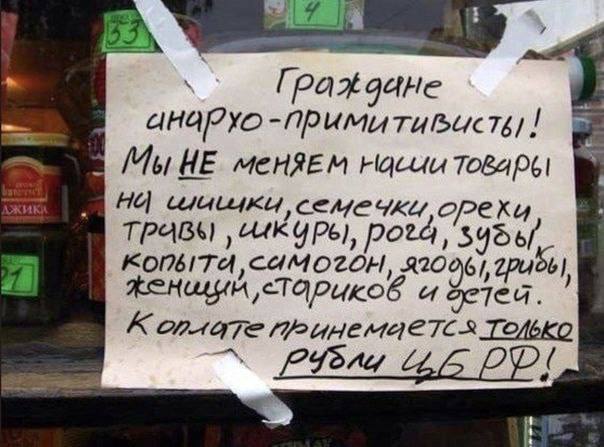 33
4
Граждане
анархо-примитивисты!
Мы НЕ меняем наши товары
на шишки, семечки, орехи,
травы, шкуры, рога, зубы,
копыта, самогон, ягоды, грибы,
женщин, стариков и детей.
К оплате принемается только
рубли ЦБ РФ!